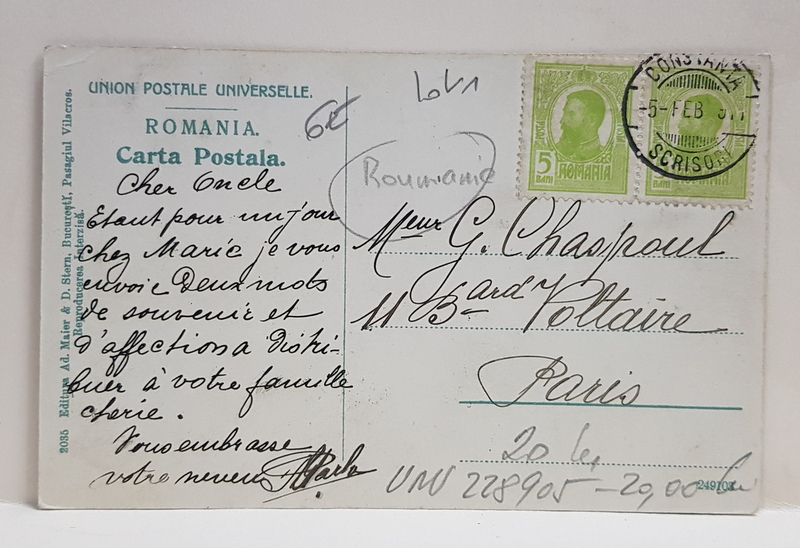 UNION POSTALE UNIVERSELLE.
ROMANIA.
Carta Postala.
Cher Oncle
Etant pour un jour
chez Marie je vous
envoie Deux mots
de souvenir et
d'affection a Distri-
buer à votre famille
cherie.
Vous embrasse
votre neveu
2035 Editura Ad. Maier & D. Stern, Bucureşti, Pasagiul Vilacros.
Reproducerea interzisă.
6€
Roumanie
5
BANI
ROMANIA
ROMANIA
CONSTANTA
-5-FEB
SCRISORI
Meur G. Chaspoul
11 Bard Voltaire
Paris
20 lei
UNU 228905 - 20,00 lei
249103